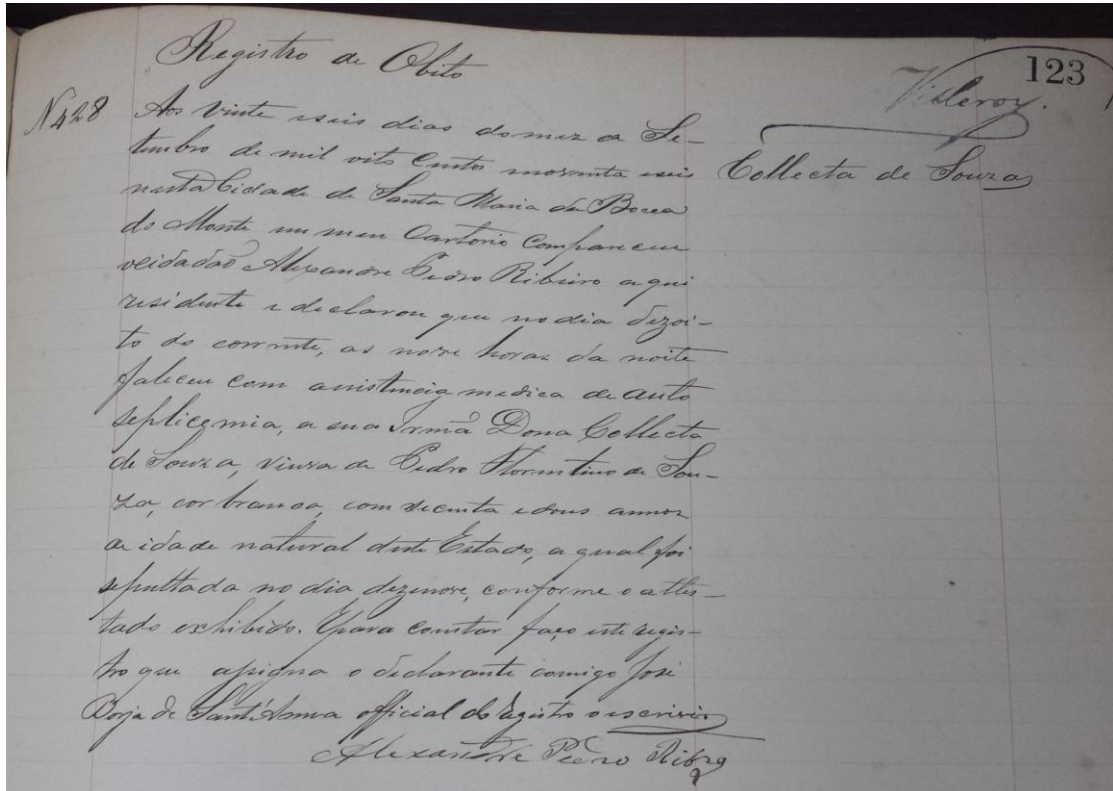 Registro de Obito
123
Villeroy.
N 428
Aos vinte e seis dias do mez de Se-
tembro de mil oito centos noventa e seis
Collecta de Souza
nesta Cidade de Santa Maria da Bocca
do Monte em meu Cartorio compareceu
o cidadaõ Alexandre Pedro Ribeiro aqui
residente e declarou que no dia dezoi-
to do corrente, as nove horas da noite
faleceu com assistencia medica de auto
septicemia, a sua Irmã Dona Collecta
de Souza, viuva de Pedro Florentino de Sou-
za, cor branca, com secenta e dous annos
de idade natural deste Estado, a qual foi
sepultada no dia dezenove, conforme o attes-
tado exhibido. E para constar faço este regis-
tro que assigna o declarante comigo José
Borja de Sant'Anna official do registro o escrivi
Alexandre Pedro Ribro